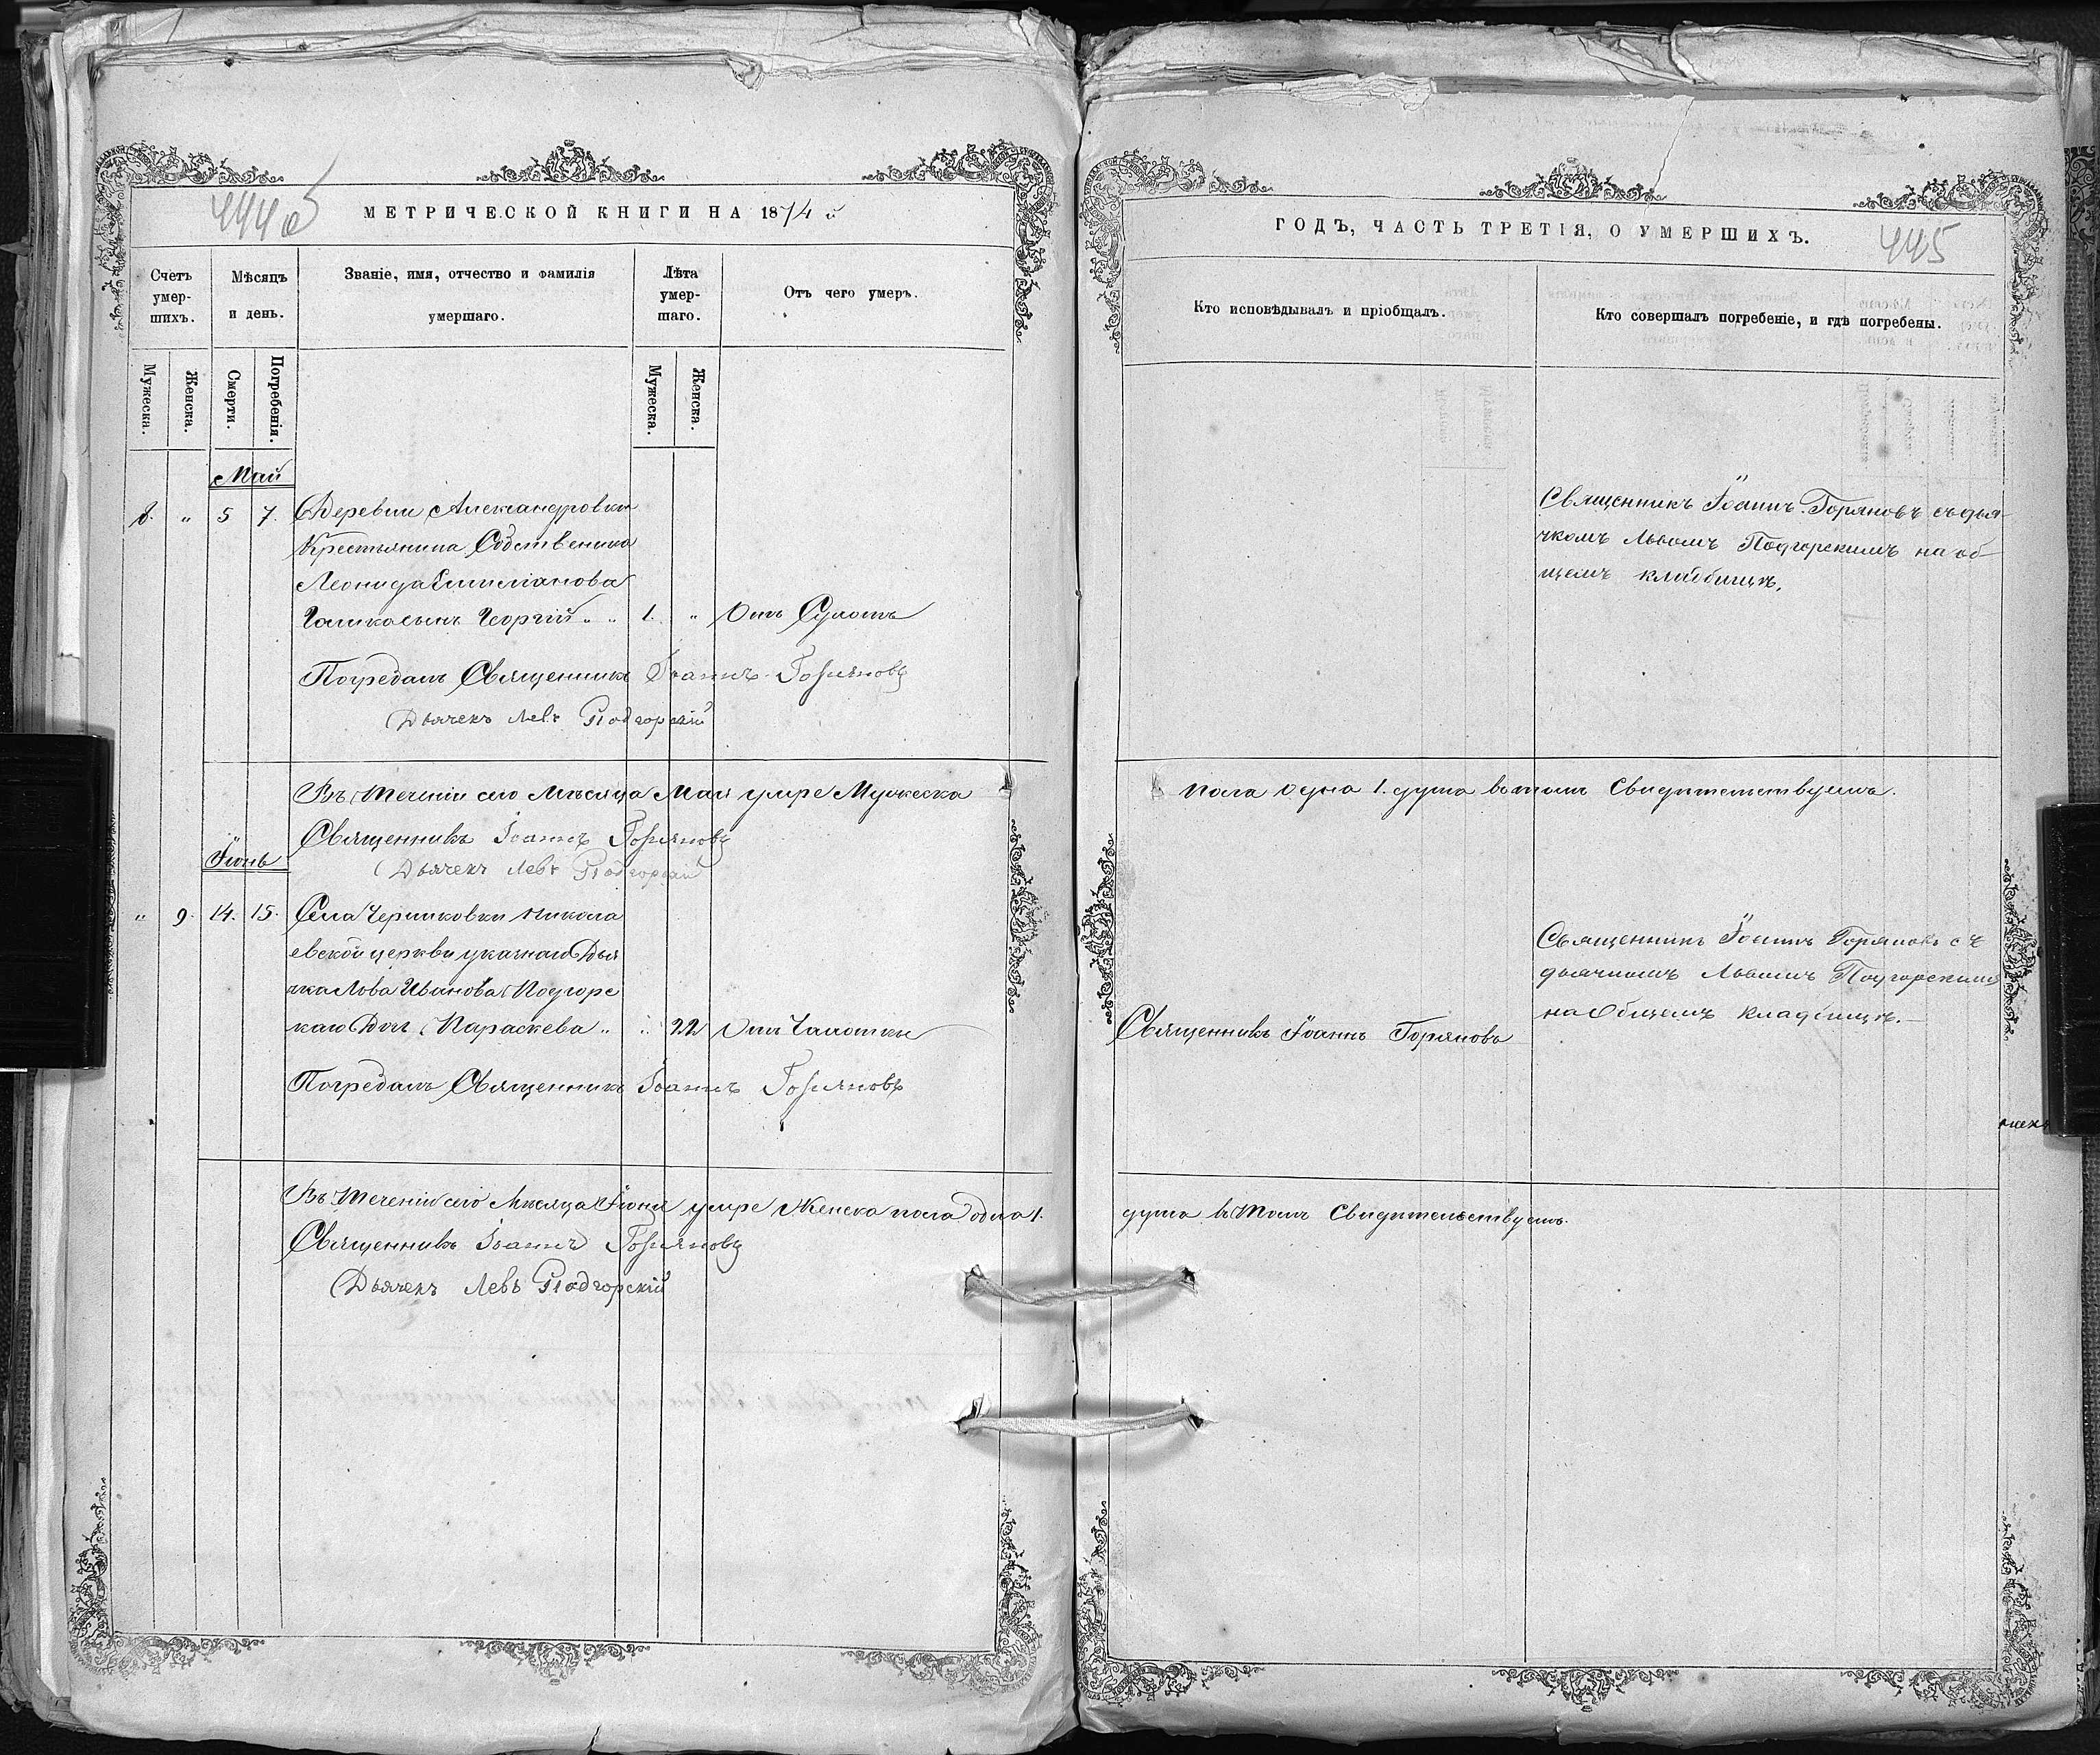 444об
МЕТРИЧЕСКОЙ КНИГИ НА 1874 й
Счетъ умер-шихъ.
Мѣсяцъ и день.
Званіе, имя, отчество и фамилія умершаго.
Лѣта умер-шаго.
Отъ чего умеръ.
Мужеска.
Женска.
Смерти.
Погребенія.
Мужеска.
Женска.
Май
8. " 5 7. Деревни Александровки
Крестьянина Собственика
Леонида Емилианова
сынъ Георгій " " 1. " Отъ Сухотъ
Погребалъ Священникъ Іоаннъ Горяновъ
Дьячекъ Левъ Подгорскій
Въ теченіи сего Мѣсяца Мая умре Мужеска
Священникъ Іоаннъ Горяновъ
Дьячекъ Левъ Подгорскій
Іюнь
" 9. 14. 15. Села Черниковки Никола
евской церкви указнаго Дья
чка Лова Иванова Подгорс
каго Дочь Параскева " " 22 Отъ Чахотки
Погребалъ Священникъ Іоаннъ Горяновъ
Въ теченіи сего Мѣсяца Іюня умре Женска пола одна 1.
Священникъ Іоаннъ Горяновъ
Дьячекъ Левъ Подгорскій
ГОДЪ, ЧАСТЬ ТРЕТІЯ, О УМЕРШИХЪ.
445
Кто исповѣдывалъ и пріобщалъ.
Кто совершалъ погребеніе, и гдѣ погребены.
Священникъ Іоаннъ Горяновъ съ дья
чкомъ Львомъ Подгорскимъ на об
щемъ кладбищѣ.
пола одна 1. душа въ томъ Свидѣтельствуемъ.
Священникъ Іоаннъ Горяновъ съ
дьячкомъ Львомъ Подгорскимъ
на Общемъ кладбищѣ.
Священникъ Іоаннъ Горяновъ
душа въ томъ Свидѣтельствуемъ.